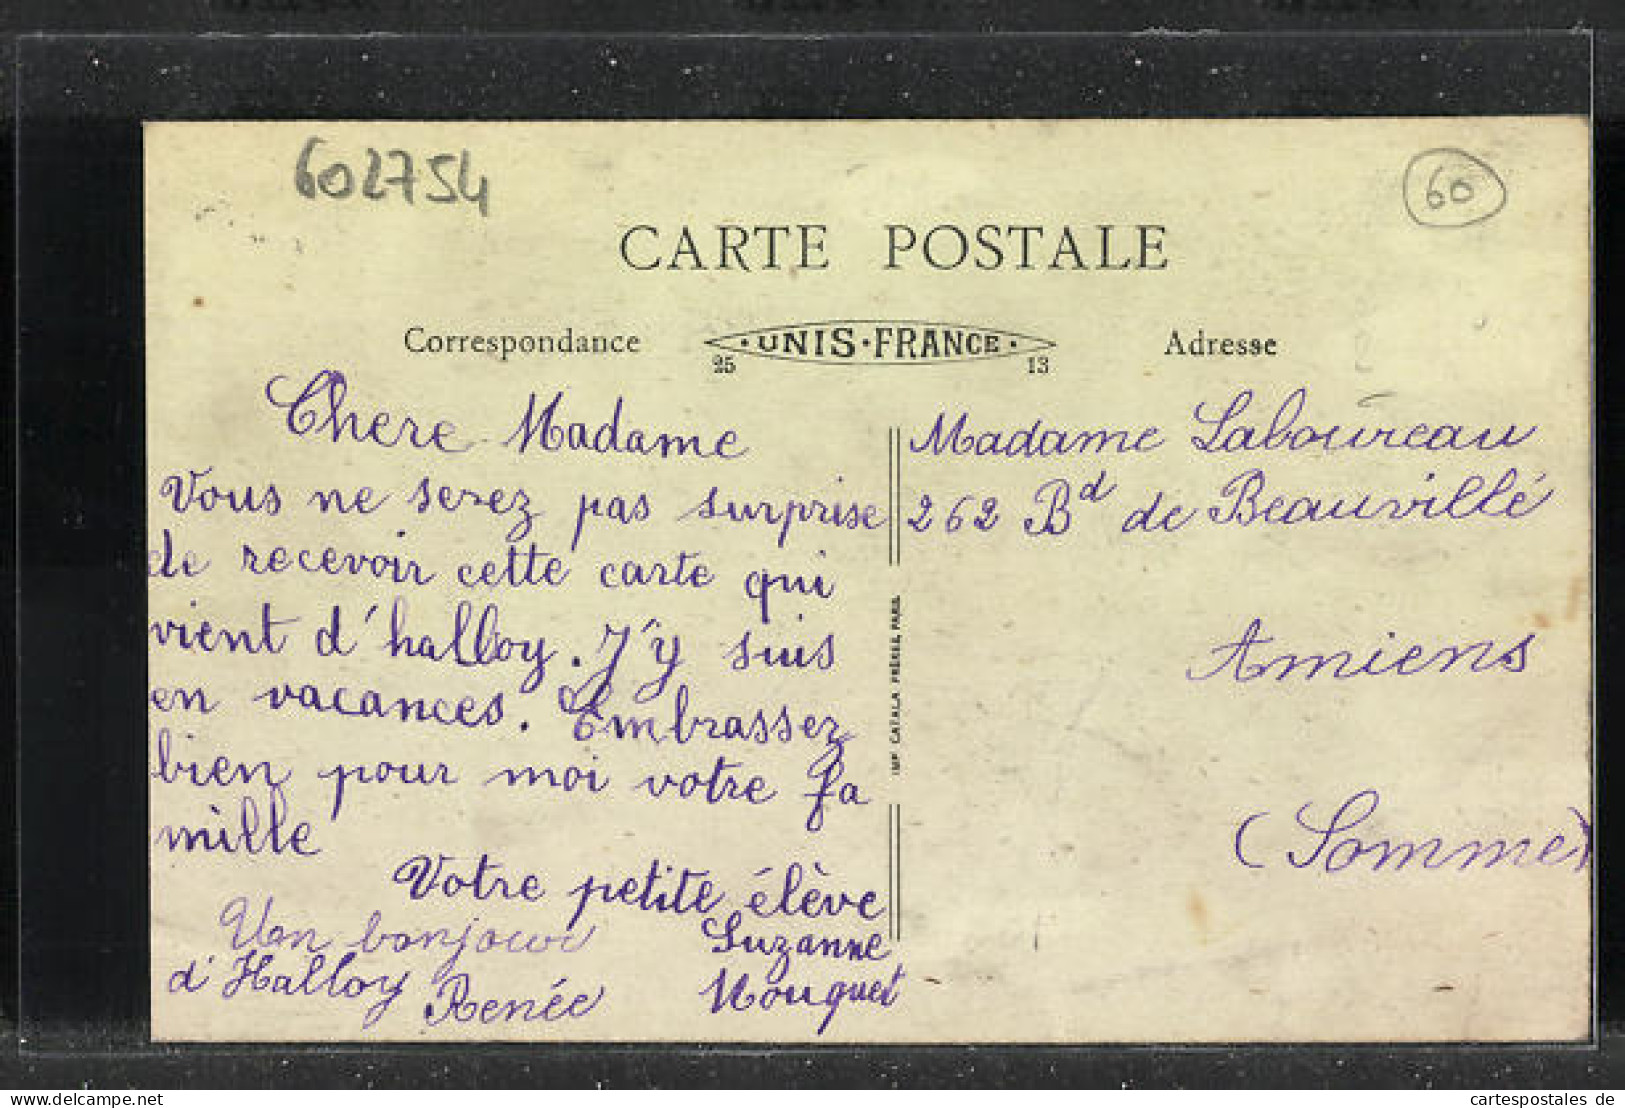 602754
60
CARTE POSTALE
Correspondance
UNIS·FRANCE
25
13
Adresse
Chere Madame
Vous ne serez pas surprise
de recevoir cette carte qui
vient d'halloy. J'y suis
en vacances. Embrassez
bien pour moi votre fa
mille
Votre petite élève
Suzanne
Un bonjour
d'Halloy Renée
IMP. CATALA FRÈRES, PARIS
Madame Laboureau
262 Bd de Beauvillé
Amiens
(Somme)
www.delcampe.net
cartespostales de